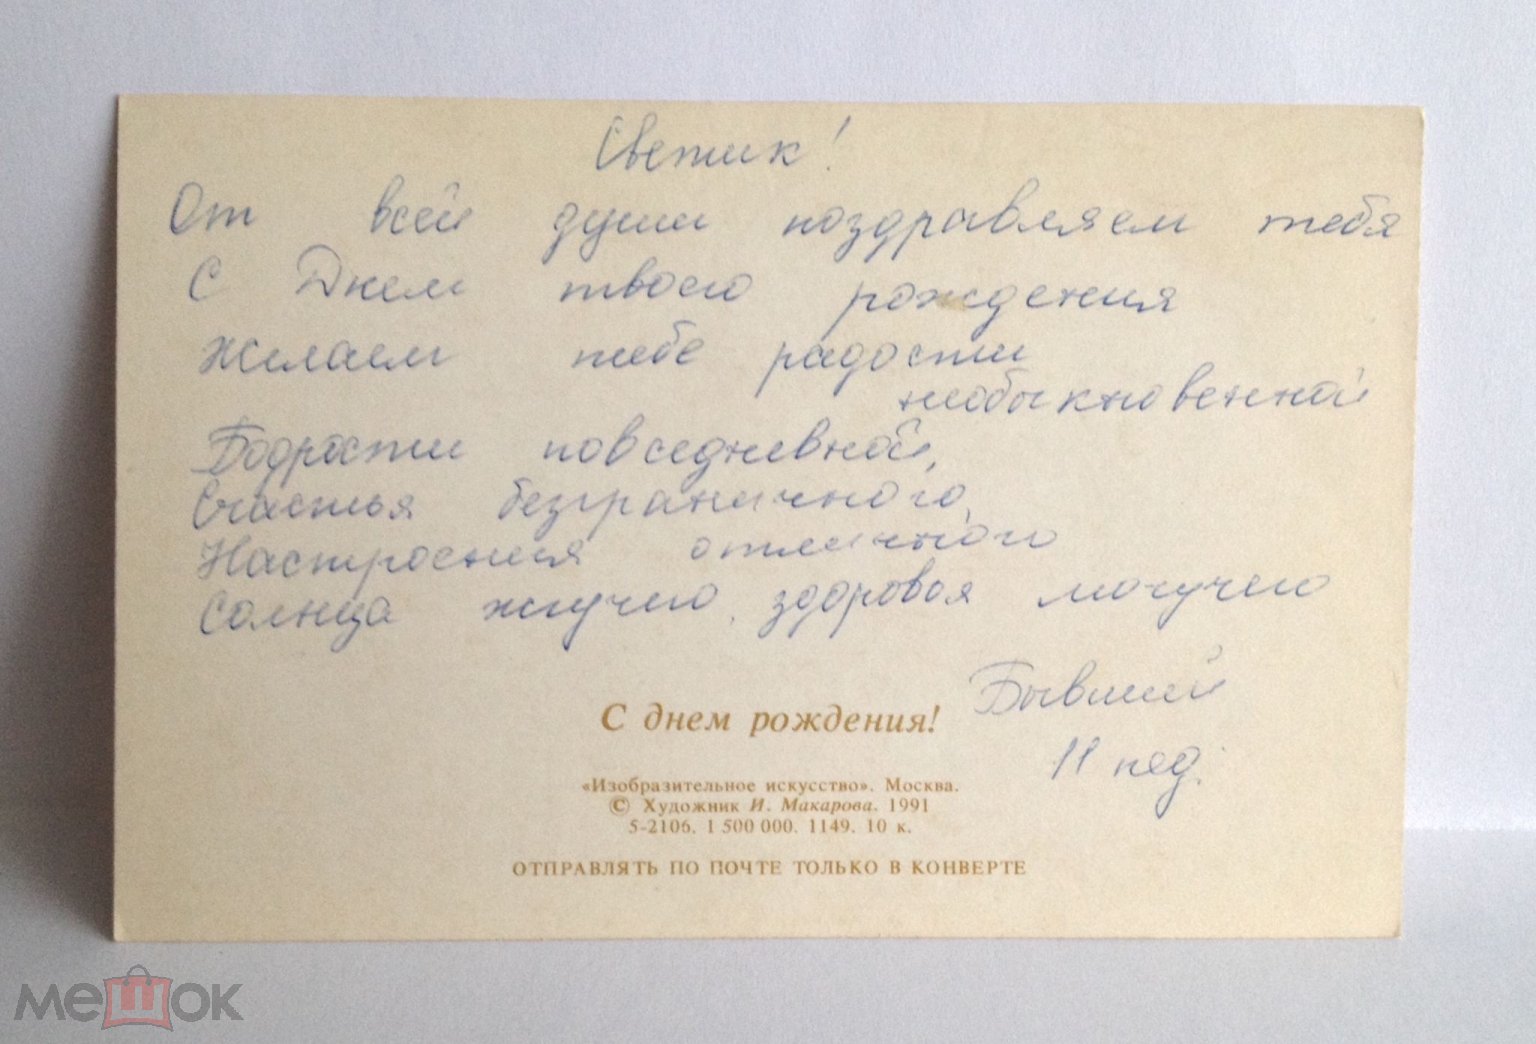 Светик!
От всей души поздравляем тебя
С Днем твоего рождения
Желаем тебе радости
необыкновенной
Бодрости повседневной,
Счастья безграничного,
Настроения отличного
Солнца жгучего, здоровья могучего
Бывший
11 пед.
С днем рождения!
«Изобразительное искусство». Москва.
© Художник И. Макарова. 1991
5-2106. 1 500 000. 1149. 10 к.
ОТПРАВЛЯТЬ ПО ПОЧТЕ ТОЛЬКО В КОНВЕРТЕ
мешок